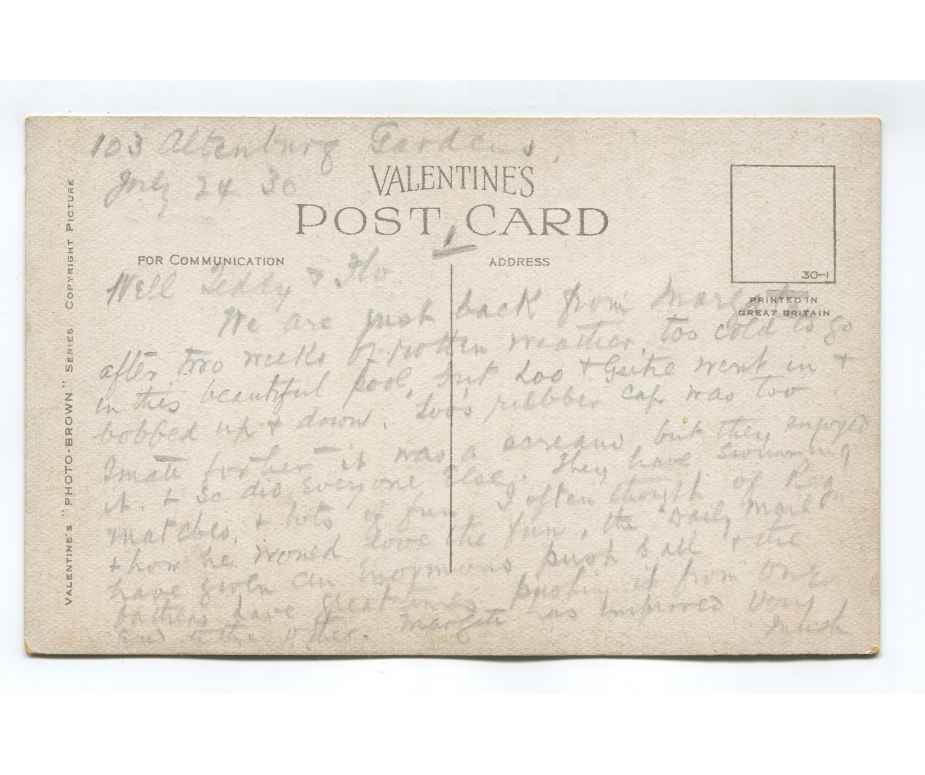 103 Altenburg Gardens,
July 24 30
VALENTINE'S
POST CARD
1
FOR COMMUNICATION
ADDRESS
30-1
PRINTED IN
GREAT BRITAIN
VALENTINE'S "PHOTO-BROWN" SERIES COPYRIGHT PICTURE
Well Teddy & Flo
We are just back from Margate
after two weeks of rotten weather, too cold to go
in this beautiful pool, but Loo & went in &
bobbed up & down. Loo's rubber cap was too
for her it was a scream but they enjoyed
it. & so did everyone else. They have Swimming
matches, & lots of fun, I often thought of
& how he would love the fun, the "Daily Mail"
have given an enormous push ball & the
bathers have great times pushing it from one
end to the other. Margate has improved very
much